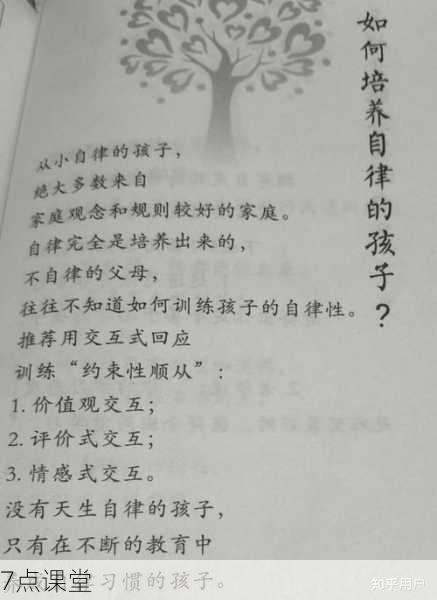 如何培养自律的孩子？
从小自律的孩子，
绝大多数来自
家庭观念和规则较好的家庭。
自律完全是培养出来的，
不自律的父母，
往往不知道如何训练孩子的自律性。
推荐用交互式回应
训练“约束性顺从”：
1. 价值观交互；
2. 评价式交互；
3. 情感式交互。
没有天生自律的孩子，
只有在不断的教育中
习惯的孩子。
7点课堂
知乎用户